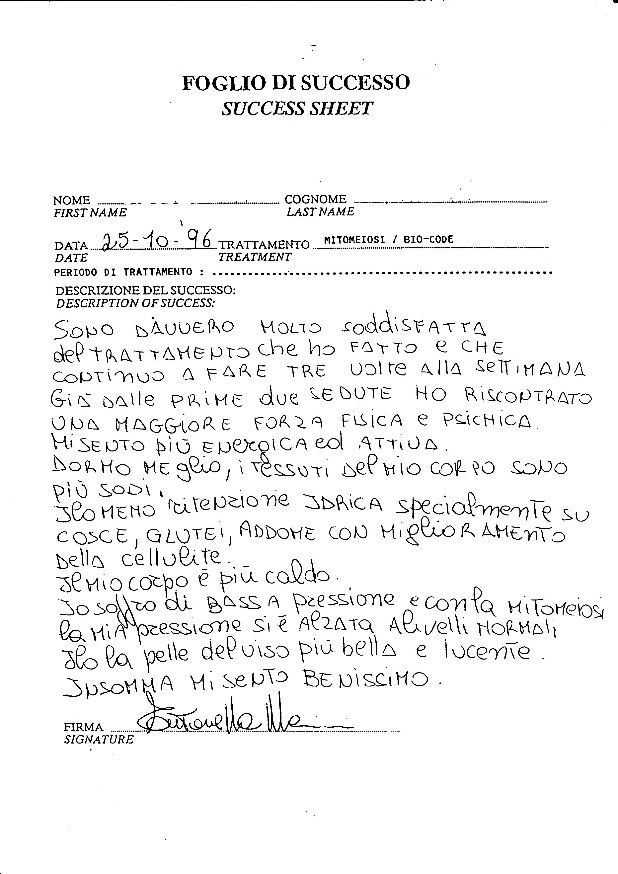 FOGLIO DI SUCCESSO
SUCCESS SHEET
NOME COGNOME
FIRST NAME LAST NAME
DATA 25-10-96 TRATTAMENTO MITOMEIOSI / BIO-CODE
DATE TREATMENT
PERIODO DI TRATTAMENTO :
DESCRIZIONE DEL SUCCESSO:
DESCRIPTION OF SUCCESS:
SONO DAVVERO MOLTO SODDISFATTA
del TRATTAMENTO che ho FATTO e CHE
CONTINUO A FARE TRE VOLTE ALLA SETTIMANA
GIÀ DALLE PRIME due SEDUTE HO RISCONTRATO
UNA MAGGIORE FORZA FISICA e PSICHICA.
MI SENTO PIÙ ENERGICA ed ATTIVA.
DORMO MEGLIO, i TESSUTI DEL MIO CORPO SONO
PIÙ SODI.
Ho MENO RITENZIONE IDRICA SPECIALMENTE SU
COSCE, GLUTEI, ADDOME CON MIGLIORAMENTO
Della cellulite.
Il MIO CORPO È PIÙ CALDO.
IO SOFFRO di BASSA PRESSIONE e con la MITOMEIOSI
la MIA PRESSIONE SI È ALZATA A livelli NORMALI,
Ho la pelle del viso più bella e lucente.
INSOMMA MI SENTO BENISSIMO.
FIRMA Antonella
SIGNATURE